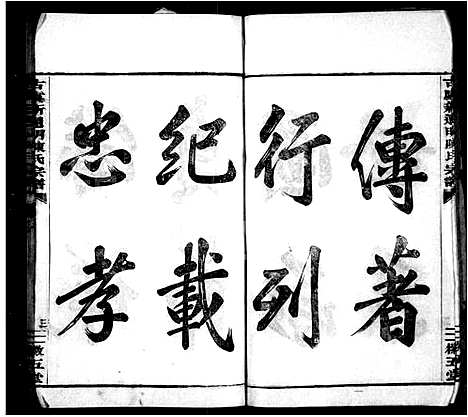 傳著
行列
紀載
忠孝